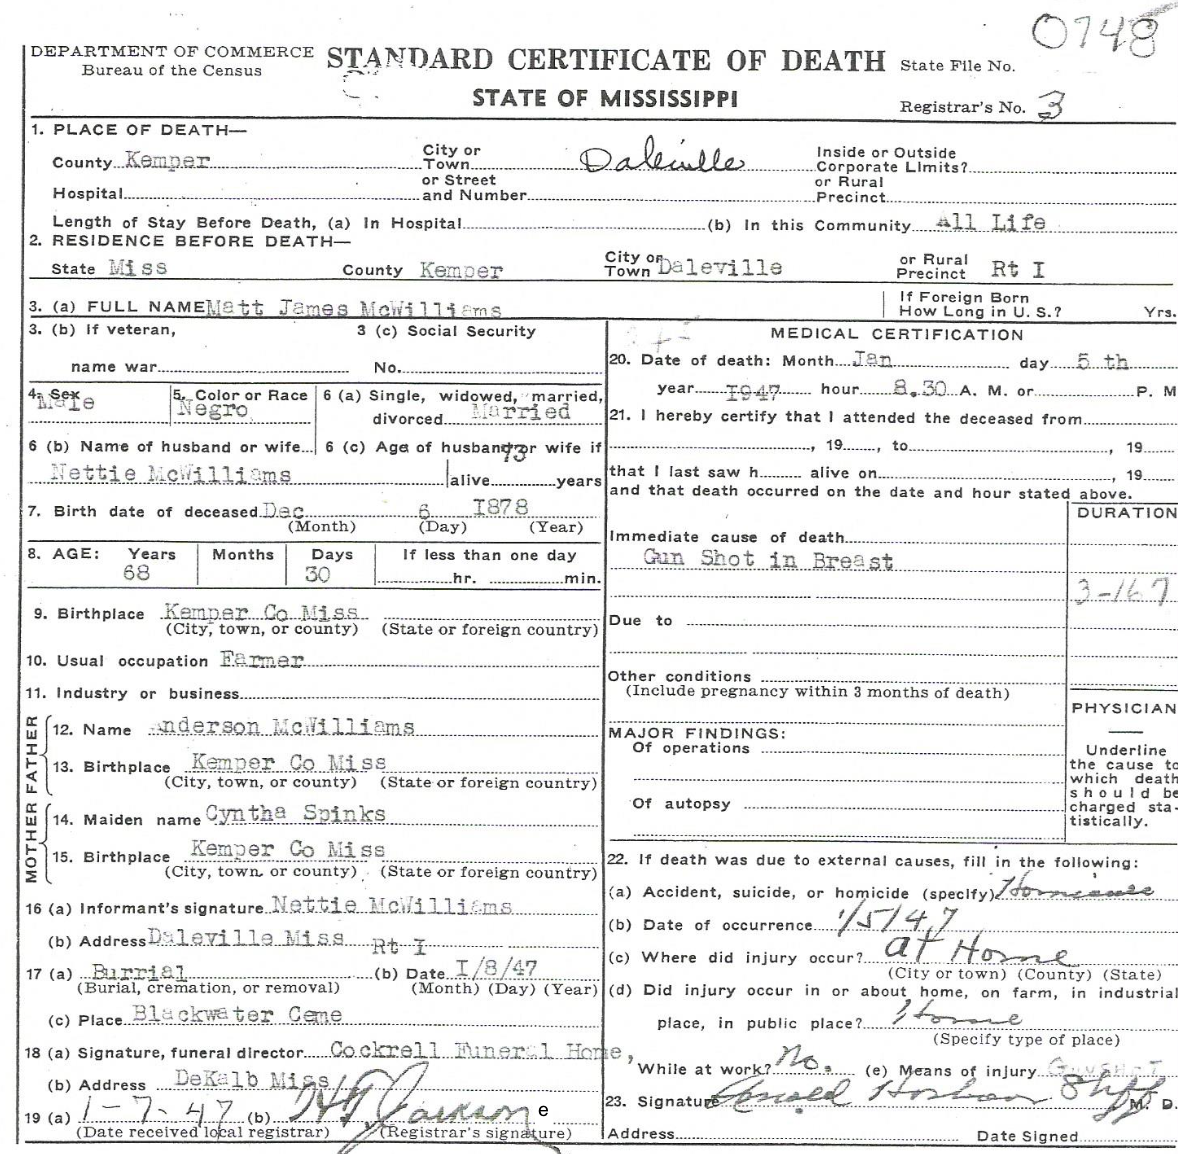 0748
DEPARTMENT OF COMMERCE STANDARD CERTIFICATE OF DEATH State File No.
Bureau of the Census
STATE OF MISSISSIPPI Registrar's No. 3
1. PLACE OF DEATH—
County Kemper City or Town Daleville Inside or Outside Corporate Limits?
Hospital or Street and Number or Rural Precinct
Length of Stay Before Death, (a) In Hospital (b) In this Community All Life
2. RESIDENCE BEFORE DEATH—
State Miss County Kemper City or Town Daleville or Rural Precinct Rt I
3. (a) FULL NAME Matt James McWilliams If Foreign Born How Long in U. S.? Yrs.
3. (b) If veteran, 3 (c) Social Security
name war No.
4. Sex 5. Color or Race 6 (a) Single, widowed, married,
Male Negro divorced Married
6 (b) Name of husband or wife 6 (c) Age of husband or wife if
Nettie McWilliams alive 73 years
7. Birth date of deceased Dec 6 I878
(Month) (Day) (Year)
8. AGE: Years Months Days If less than one day
68 30 hr. min.
9. Birthplace Kemper Co Miss
(City, town, or county) (State or foreign country)
10. Usual occupation Farmer
11. Industry or business
FATHER
12. Name Anderson McWilliams
13. Birthplace Kemper Co Miss
(City, town, or county) (State or foreign country)
MOTHER
14. Maiden name Cyntha Spinks
15. Birthplace Kemper Co Miss
(City, town, or county) (State or foreign country)
16 (a) Informant's signature Nettie McWilliams
(b) Address Daleville Miss Rt I
17 (a) Burrial (b) Date I/8/47
(Burial, cremation, or removal) (Month) (Day) (Year)
(c) Place Blackwater Ceme
18 (a) Signature, funeral director Cockrell Funeral Home,
(b) Address DeKalb Miss
19 (a) 1-7-47 (b) Jackson e
(Date received local registrar) (Registrar's signature)
MEDICAL CERTIFICATION
20. Date of death: Month Jan day 5 th
year I947 hour 8.30 A. M. or P. M
21. I hereby certify that I attended the deceased from
, 19 , to , 19
that I last saw h alive on , 19
and that death occurred on the date and hour stated above.
DURATION
Immediate cause of death
Gun Shot in Breast
3-167
Due to
Other conditions
(Include pregnancy within 3 months of death)
MAJOR FINDINGS:
Of operations
Of autopsy
PHYSICIAN
Underline
the cause to
which death
should be
charged sta-
tistically.
22. If death was due to external causes, fill in the following:
(a) Accident, suicide, or homicide (specify) Homicide
(b) Date of occurrence 1/5/47
(c) Where did injury occur? at Home
(City or town) (County) (State)
(d) Did injury occur in or about home, on farm, in industrial
place, in public place? Home
(Specify type of place)
While at work? No. (e) Means of injury Gunshot
23. Signature Shff M. D.
Address Date Signed